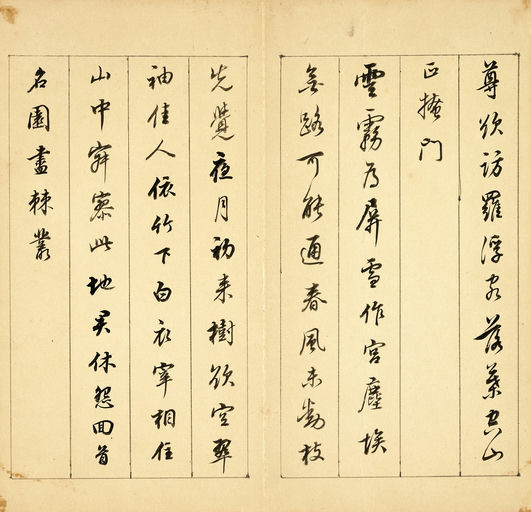 尊欲訪羅浮客落葉空山
正掩門
雲霧為屏雪作宮塵埃
無路可能通春風未動枝
先覺夜月初來樹欲空翠
袖佳人依竹下白衣宰相住
山中寂寥此地君休怨回首
名園盡棘叢